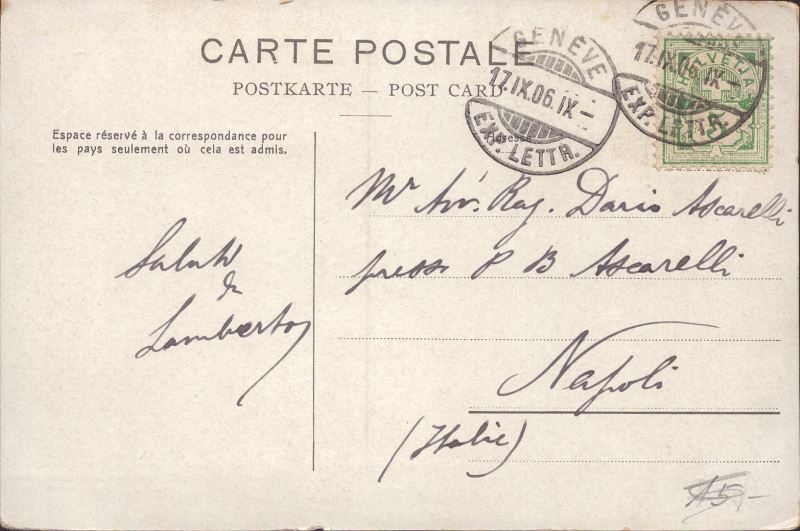 CARTE POSTALE
POSTKARTE — POST CARD
Espace réservé à la correspondance pour
les pays seulement où cela est admis.
Adresse
GENÈVE
17.IX.06.IX–
EXP. LETTR.
GENÈVE
17.IX.06.IX–
EXP. LETTR.
HELVETIA
5
Saluti
da
Lamberto
Mr Avv. Rag. Dario Ascarelli
presso P B Ascarelli
Napoli
(Italie)